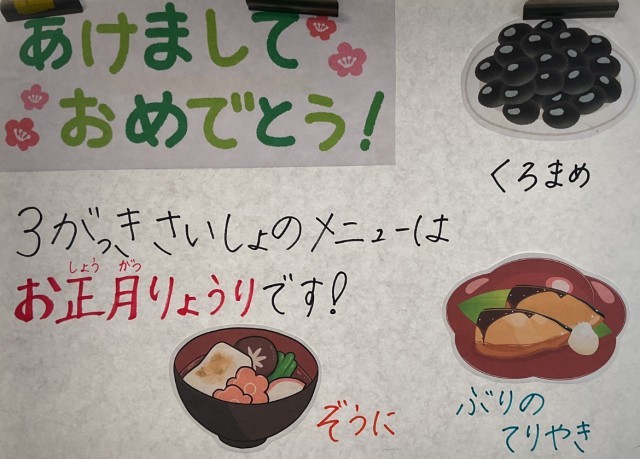 あけまして
おめでとう!
くろまめ
3がっきさいしょのメニューは
しょう がつ
お正月りょうりです!
ぞうに
ぶりの
てりやき